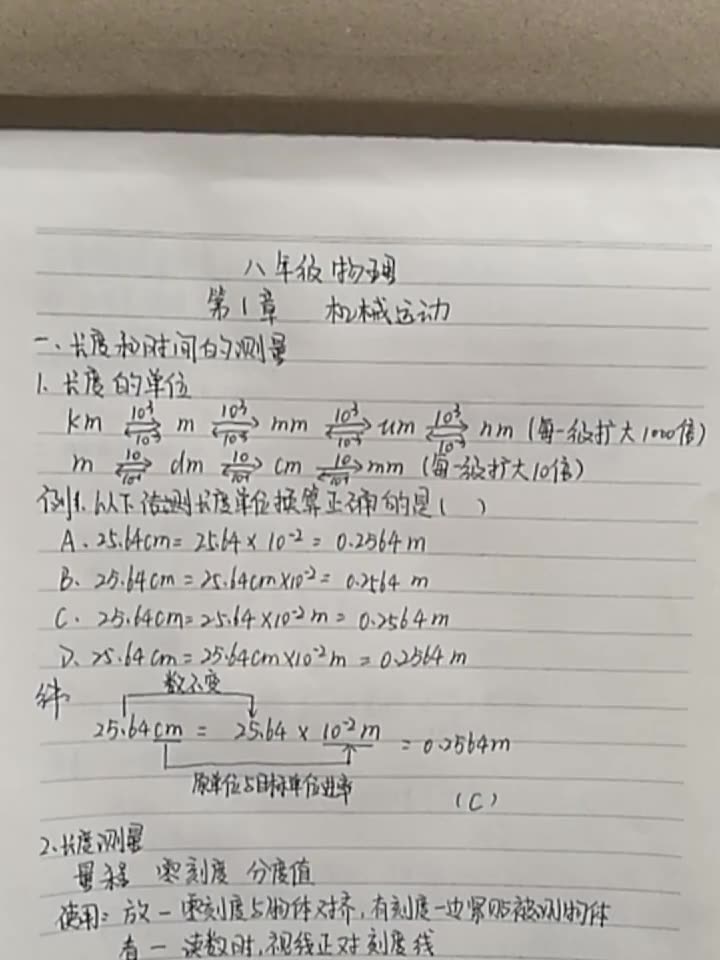 八年级物理
第1章 机械运动
一、长度和时间的测量
1. 长度的单位
km ⇌ m ⇌ mm ⇌ um ⇌ nm (每一级扩大1000倍)
10³ 10³ 10³ 10³
m ⇌ dm ⇌ cm ⇌ mm (每一级扩大10倍)
10 10 10
例1. 以下估测长度单位换算正确的是( )
A、25.64cm = 25.64 × 10⁻² = 0.2564 m
B、25.64cm = 25.64cm×10⁻² = 0.2564 m
C. 25.64cm = 25.64×10⁻² m = 0.2564 m
D、25.64cm = 25.64cm×10⁻² m = 0.2564 m
数不变
解:
25.64cm = 25.64 × 10⁻² m = 0.2564m
原单位与目标单位进率
(C)
2、长度测量
量程 零刻度 分度值
使用: 放一零刻度与物体对齐,有刻度一边紧贴被测物体
看一 读数时,视线正对刻度线